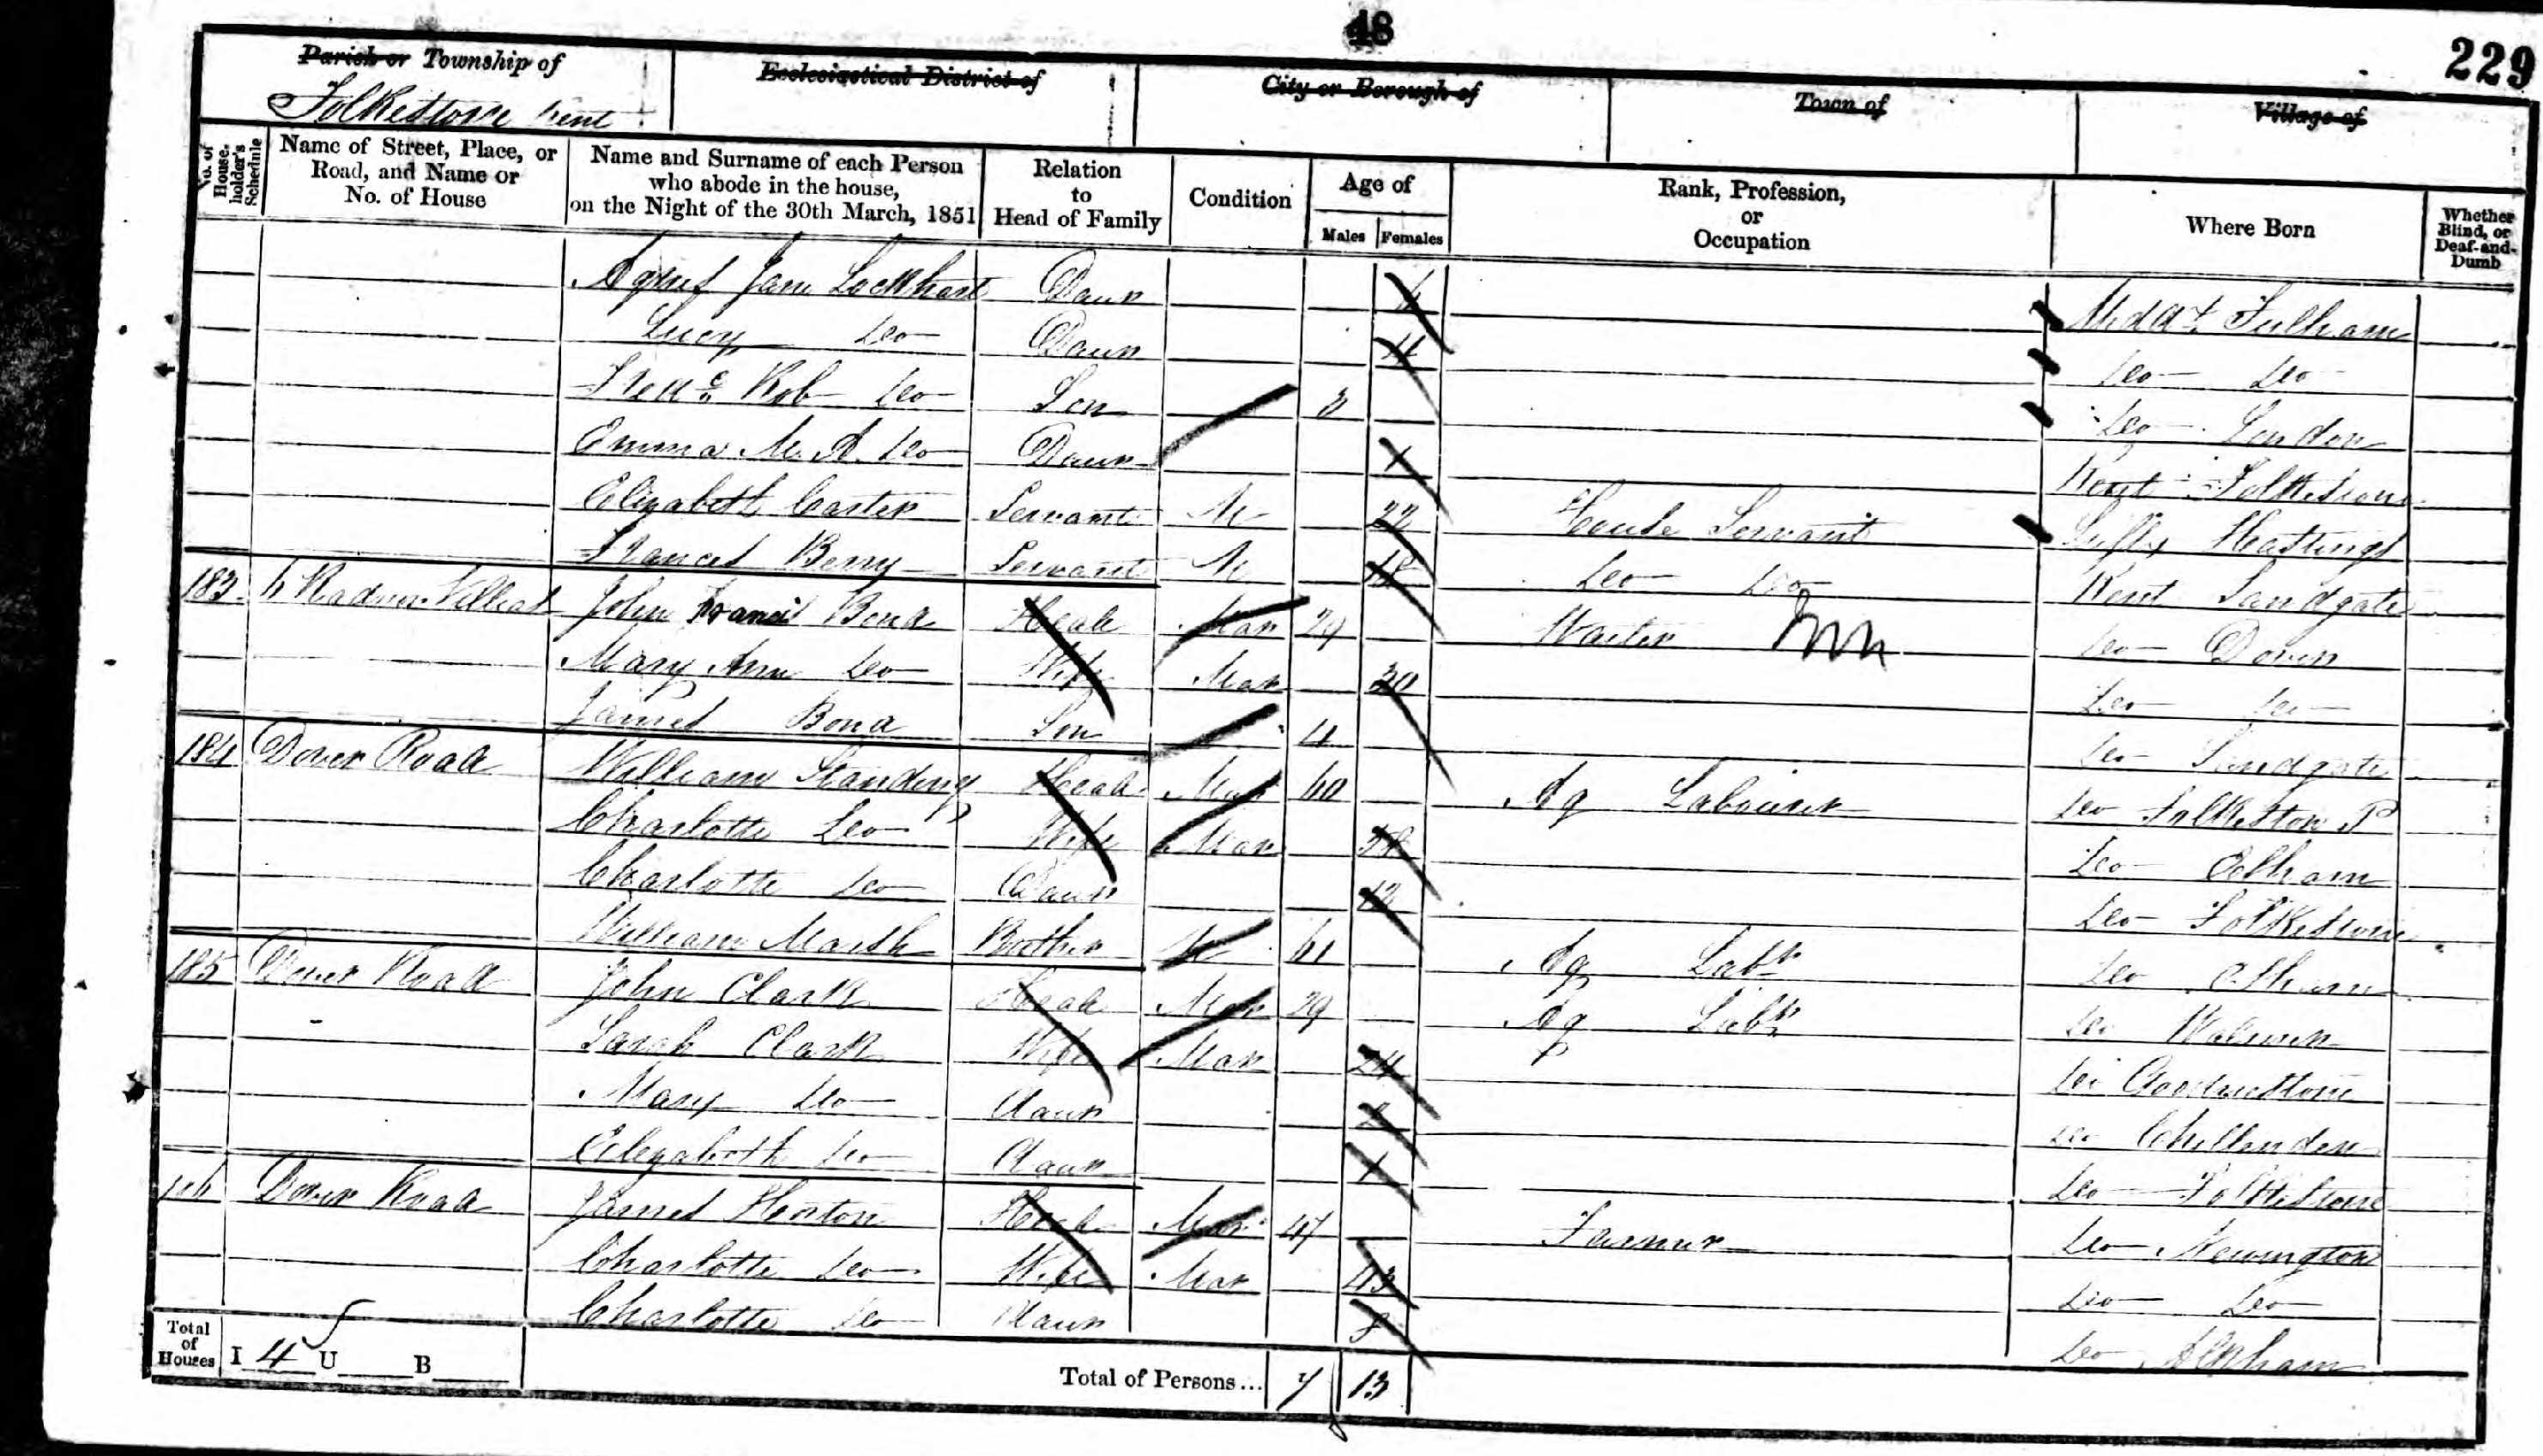 48
229
Parish or Township of
Ecclesiastical District of
City or Borough of
Town of
Village of
Folkestone Kent
No. of House-holder's Schedule
Name of Street, Place, or Road, and Name or No. of House
Name and Surname of each Person who abode in the house, on the Night of the 30th March, 1851
Relation to Head of Family
Condition
Age of
Males Females
Rank, Profession, or Occupation
Where Born
Whether Blind, or Deaf-and-Dumb
Agnes Jane Lockhart Daur Middx Fulham
Lucy Do Daur Do Do
Fredc Rob Do Son 3 Do London
Emma M. A. Do Daur 1 Kent Folkestone
Elizabeth Carter Servant U 22 House Servant Hastings
Frances Berry Servant U 18 Do Do Kent Sandgate
183 Radnor Villas John Francis Bond Head Mar 29 Waiter Do Dover
Mary Ann Do Wife Mar 30 Do Do
James Bond Son 4 Do Sandgate
184 Dover Road William Standing Head Mar 60 Ag Labourer Do Folkestone P
Charlotte Do Wife Mar Do Elham
Charlotte Do Daur 12 Do Folkestone
William Marsh Brother U 61 Ag Labr Do Elham
185 Dover Road John Clark Head Mar 29 Ag Labr Do
Sarah Clark Wife Mar 24 Do Goodnestone
Mary Do Daur Do Chillenden
Elizabeth Do Daur 1 Do Folkestone
186 Dover Road James Head Mar 47 Farmer Do Newington
Charlotte Do Wife Mar 43 Do Do
Charlotte Do Daur 8 Do Alkham
Total of Houses I 4 U B
Total of Persons... 7 13